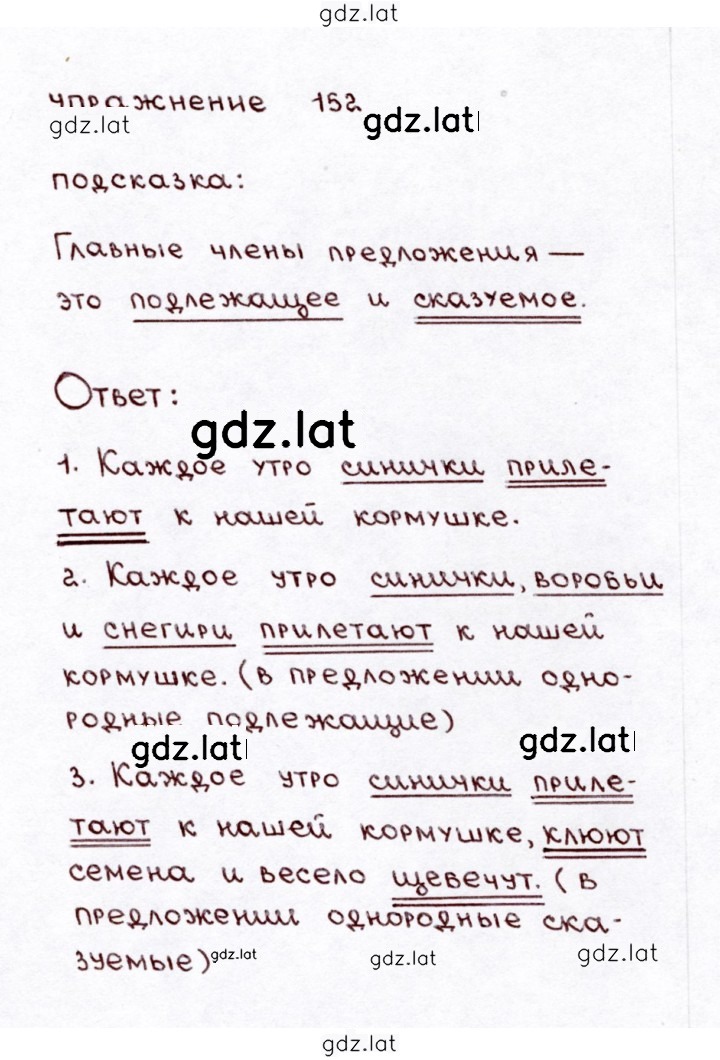 gdz.lat
упражнение 152
gdz.lat
gdz.lat
подсказка:
Главные члены предложения —
это подлежащее и сказуемое.
Ответ:
gdz.lat
1. Каждое утро синички приле-
тают к нашей кормушке.
2. Каждое утро синички, воробьи
и снегири прилетают к нашей
кормушке. (в предложении одно-
родные подлежащие)
gdz.lat
gdz.lat
3. Каждое утро синички приле-
тают к нашей кормушке, клюют
семена и весело щебечут. (в
предложении однородные ска-
зуемые)
gdz.lat
gdz.lat
gdz.lat
gdz.lat